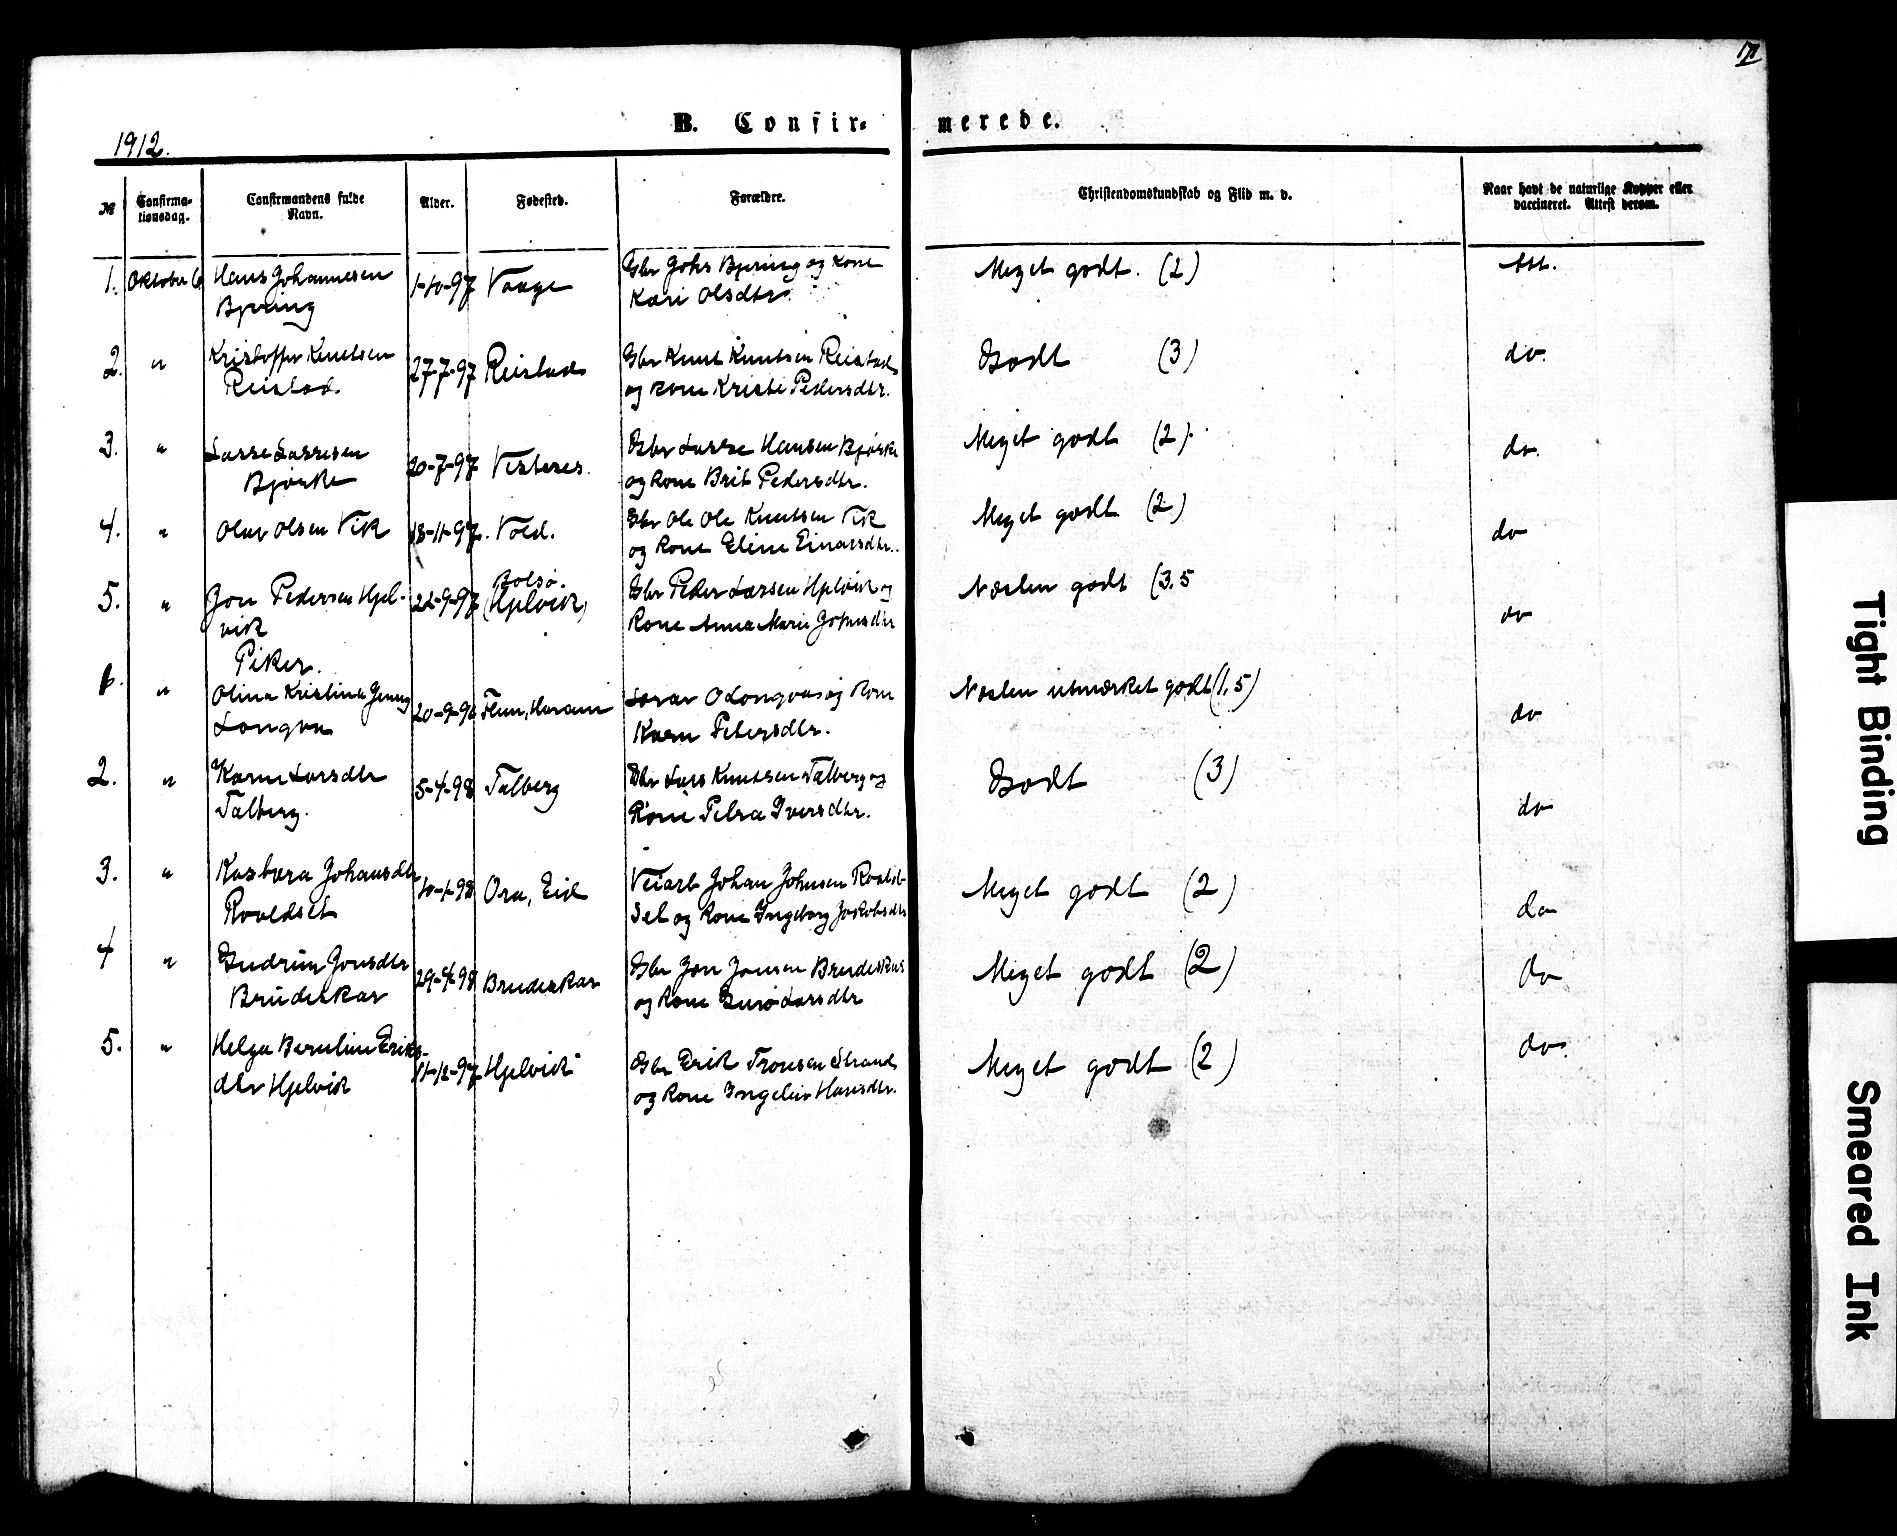 171
B. Confir-
merede.
1912.
№
Confirma-
tionsdag.
Confirmandens fulde
Navn.
Alder.
Fødested.
Forældre.
Christendomskundskab og Flid m. v.
Naar havt de naturlige Kopper eller
vaccineret. Attest derom.
1. Oktober 6 Hans Johannesen 1-10-97 Vaage Gbr Johs Bjering og kone Meget godt. (2) Att.
Bjering Kari Olsdtr.
2. " Kristoffer Knutsen 27-7-97 Reistad Gbr Knut Knutsen Reistad Godt (3) do.
Reistad og kone Kristi Pedersdtr.
3. " Lasse Lassesen 20-7-97 Vestnes. Gbr Lasse Hansen Bjørke Meget godt (2). do.
Bjørke og kone Brit Pedersdtr.
4. " Olav Olsen Vik 18-11-97. Vold. Gbr Ole Ole Knutsen Vik Meget godt (2) do
og kone Eline Einarsdtr.
Bolsø.
5. " Jon Pedersen Hjel- 22-9-97 (Hjelvik) Gbr Peder Larsen Hjelvik og Næsten godt (3.5 do
vik kone Anna Marie Johnsdtr
Piker.
1. " Olina Kristina Jenny 20-9-96 Flem, Haram Lærar O Longva og kone Næsten utmærket godt (1,5) do
Longva Karen Petersdtr.
2. " Karen Larsdtr 5-4-98 Talberg Gbr Lars Knutsen Talberg og Godt (3) do
Talberg. kone Petra Iversdtr.
3. " Kasbæra Johansdtr 10-1-98 Ora, Eid Veiarb Johan Johnsen Roald- Meget godt (2) do
Roaldset set og kone Ingeborg Jakobsdtr
4 " Gudrun Jonsdtr 29-4-98 Brudeskar Gbr Jon Jonsen Brudeskar Meget godt (2) do
Brudeskar og kone Guro Larsdtr
5. " Helga Bernline Eriks- 11-12-97 Hjelvik Gbr Erik Tronsen Strand Meget godt (2) do.
dtr Hjelvik og kone Ingeleiv Hansdtr.
Tight Binding
Smeared Ink